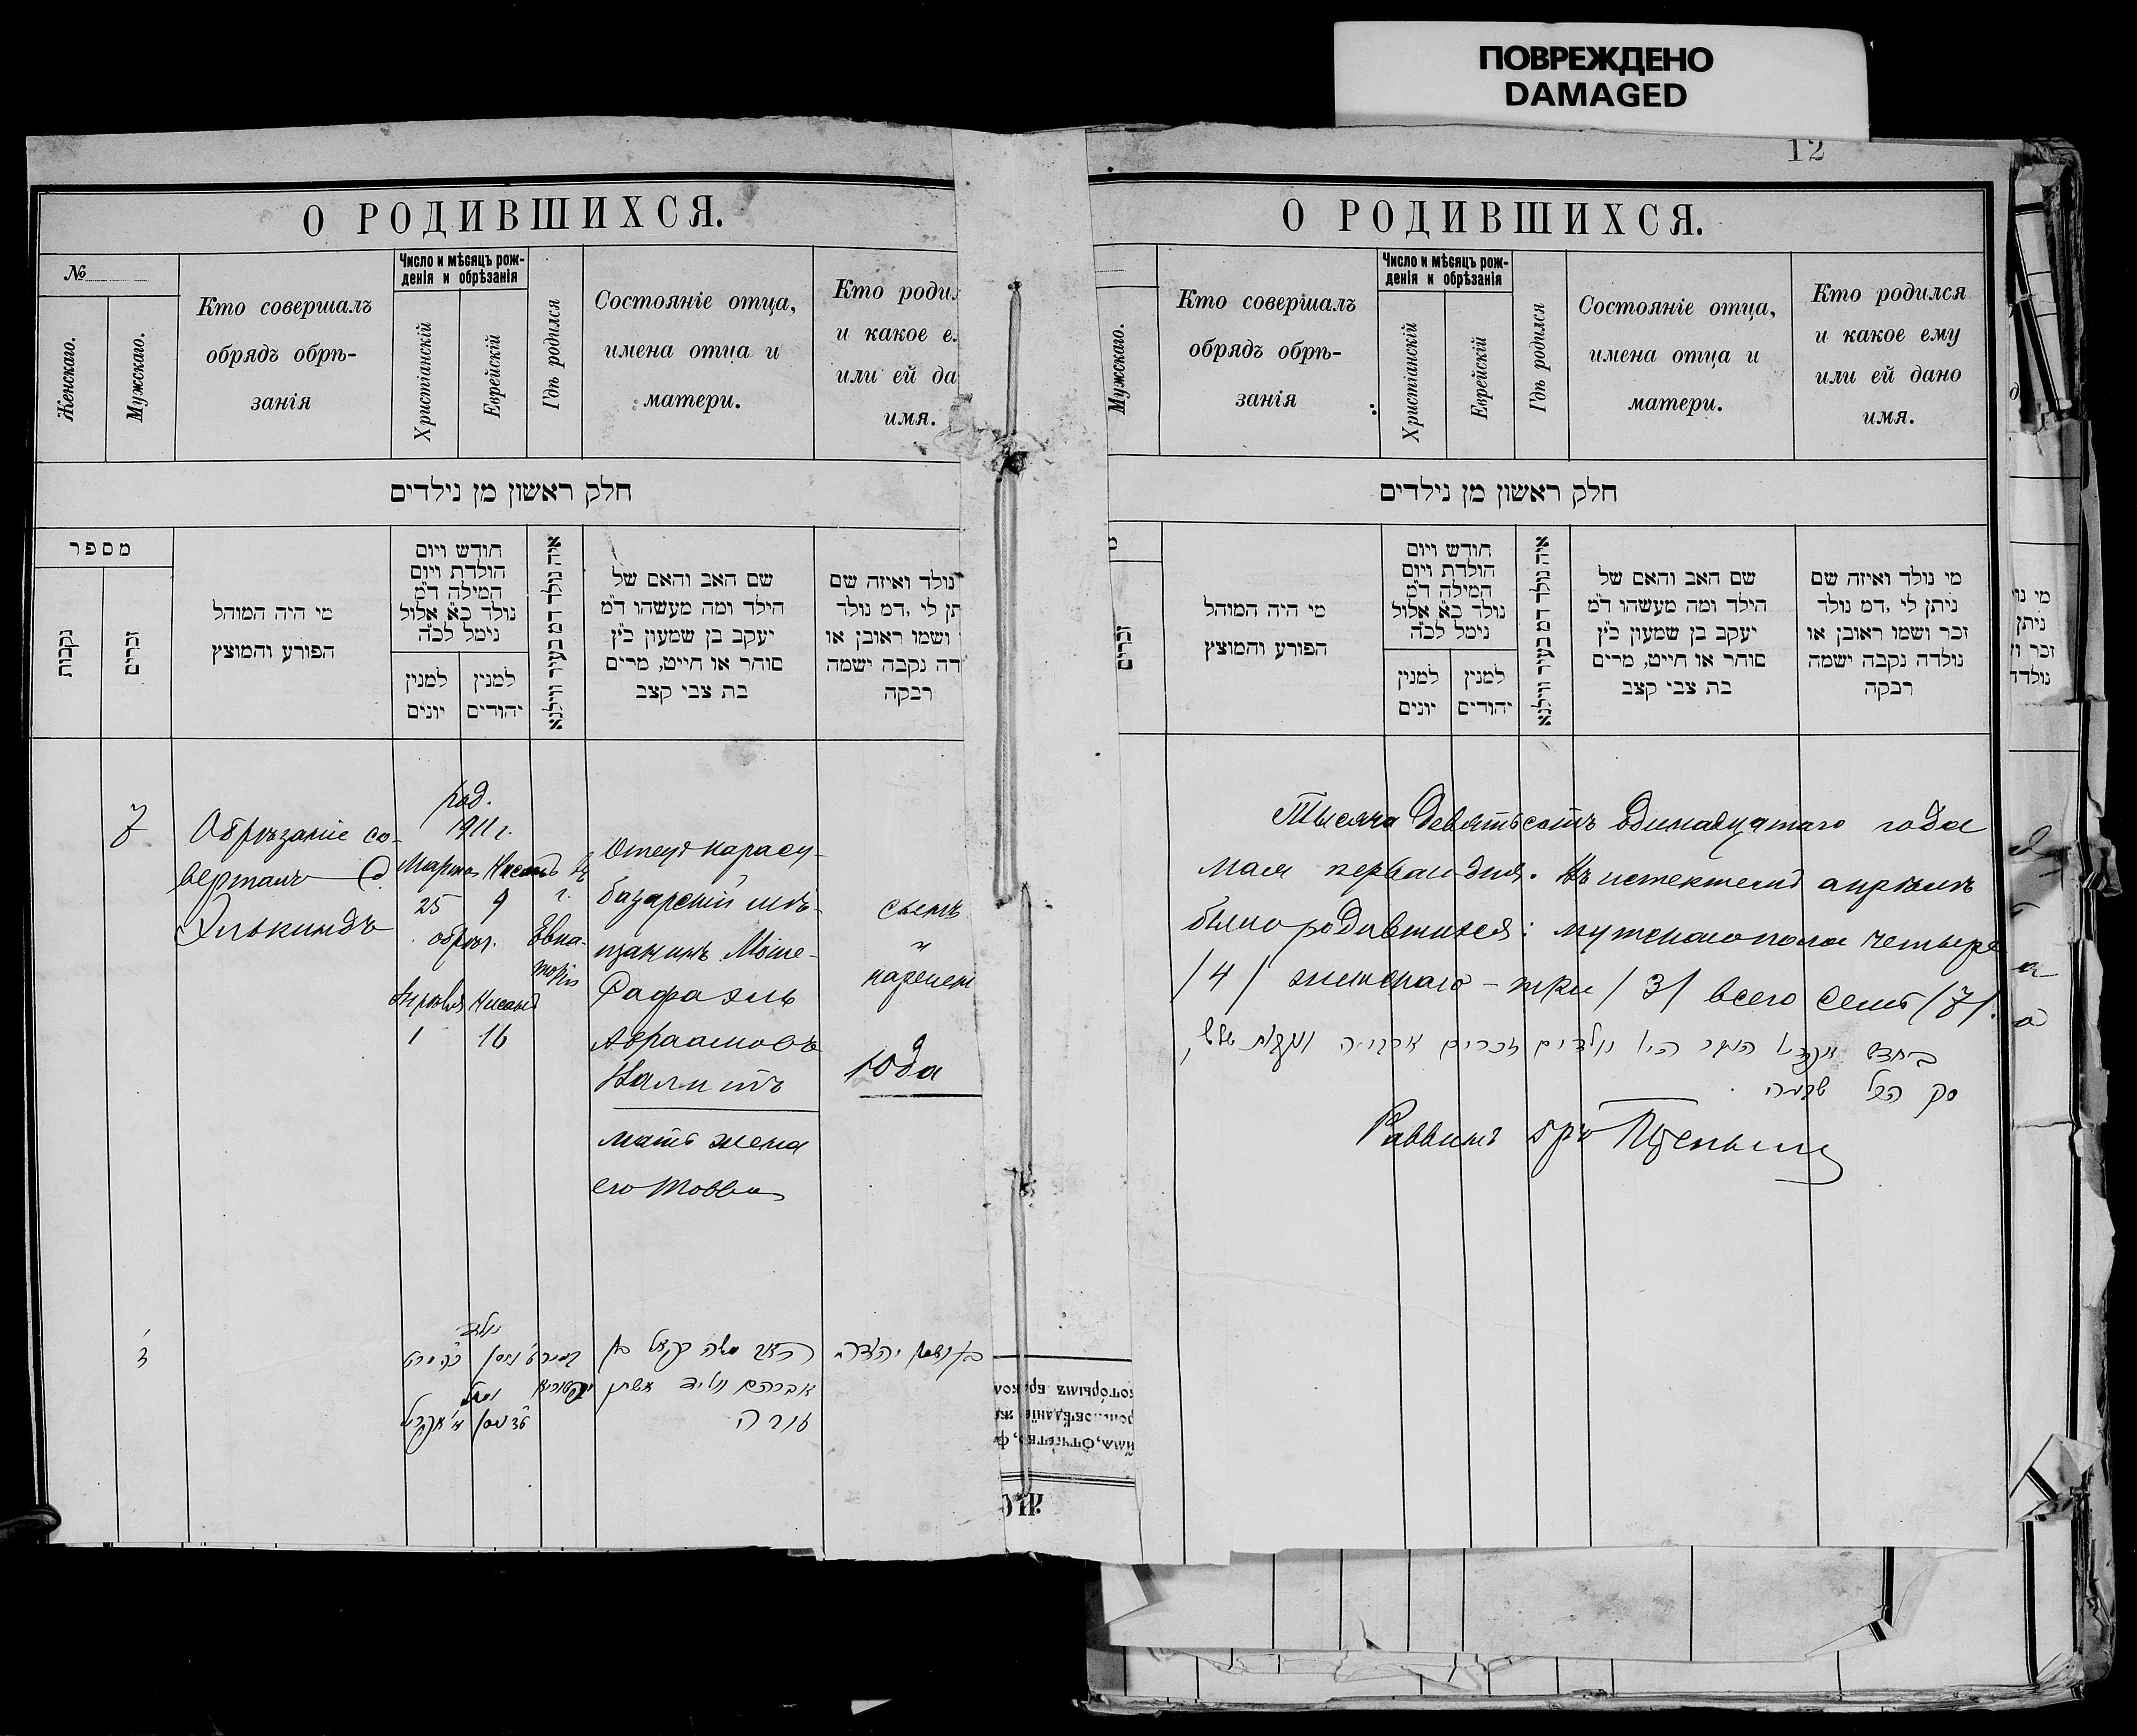 ПОВРЕЖДЕНО
DAMAGED
О РОДИВШИХСЯ.
№
Женскаго.
Мужскаго.
Кто совершалъ
обрядъ обрѣ-
занія
Число и мѣсяцъ рож-
денія и обрѣзанія
Христіанскій
Еврейскій
Гдѣ родился
Состояніе отца,
имена отца и
матери.
Кто роди
и какое е
или ей да
имя.
חלק ראשון מן נילדים
מספר
נקבות
זכרים
מי היה המוהל
הפורע והמוצץ
חודש ויום
הולדת ויום
המילה ד״מ
נולד כ״א אלול
נימל לכ״ה
למנין
יונים
למנין
יהודים
איה נולד דמ בעיר ווילנא
שם האב והאם של
הילד ומה מעשהו ד״מ
יעקב בן שמעון כ״ץ
סוחר או חייט, מרים
בת צבי קצב
נולד ואיזה שם
תן לי ,דמ נולד
ושמו ראובן או
דה נקבה ישמה
רבקה
7
Обрѣзаніе со-
вершалъ О.
Элькиндъ
род.
1911 г.
Марта Нисонъ
25 9
обрѣз.
Апрѣля Нисонъ
1 16
г.
Евпа-
торія
Отецъ карасу-
базарскій мѣ-
щанинъ Моше-
Рафаэль
Авраамовъ
мать жена
его Товва
сынъ
"
нареченъ
Юда
ז
נולד
אברהם
אשתו
יהודה
12
О РОДИВШИХСЯ.
Мужскаго.
Кто совершалъ
обрядъ обрѣ-
занія
Число и мѣсяцъ рож-
денія и обрѣзанія
Христіанскій
Еврейскій
Гдѣ родился
Состояніе отца,
имена отца и
матери.
Кто родился
и какое ему
или ей дано
имя.
חלק ראשון מן נילדים
זכרים
מי היה המוהל
הפורע והמוצץ
חודש ויום
הולדת ויום
המילה ד״מ
נולד כ״א אלול
נימל לכ״ה
למנין
יונים
למנין
יהודים
איה נולד דמ בעיר ווילנא
שם האב והאם של
הילד ומה מעשהו ד״מ
יעקב בן שמעון כ״ץ
סוחר או חייט, מרים
בת צבי קצב
מי נולד ואיזה שם
ניתן לי ,דמ נולד
זכר ושמו ראובן או
נולדה נקבה ישמה
רבקה
Тысяча девятьсотъ одинадцатаго года
мая перваго дня. Въ истекшемъ апрѣлѣ
было родившихся: мужскаго пола четыре
/4/ женскаго - три /3/ всего семь /7/.
נולדים זכרים ארבעה
סך הכל שבעה
Раввинъ